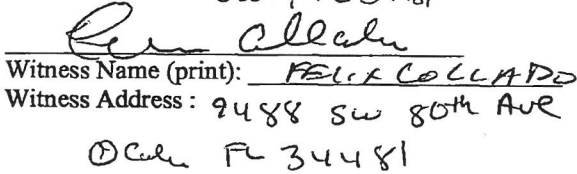 Witness Name (print): FELIX COLLADO
Witness Address : 9488 SW 80th Ave
Ocala FL 34481